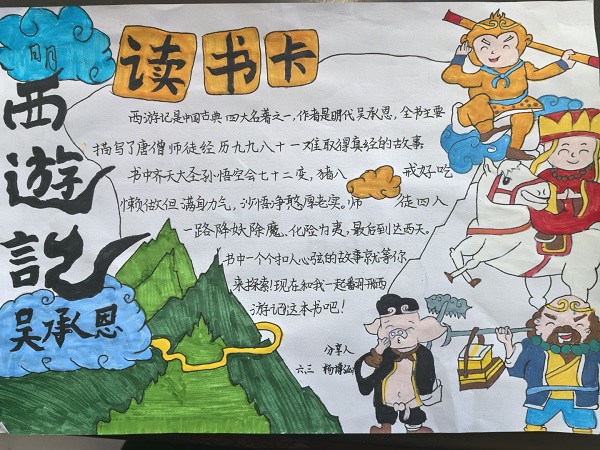 明
西遊記
吴承恩
读书卡
西游记是中国古典四大名著之一,作者是明代吴承恩,全书主要
描写了唐僧师徒经历九九八十一难取得真经的故事
书中齐天大圣孙悟空会七十二变,猪八戒好吃
懒做但满身力气,沙悟净憨厚老实。师徒四人
一路降妖除魔、化险为夷,最后到达西天。
书中一个个扣人心弦的故事就等你
来探索!现在和我一起翻开西
游记这本书吧!
分享人
六三 杨博涵